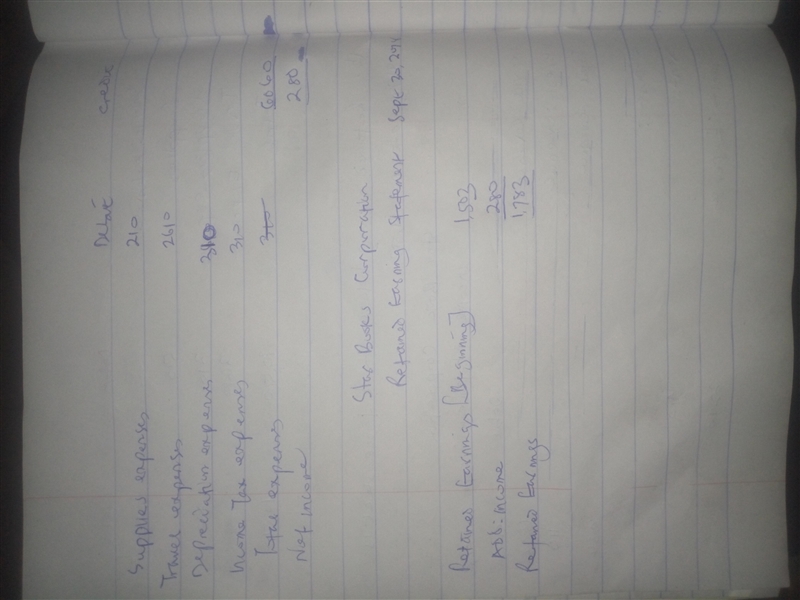 Debit Credit
Supplies expenses 210
Travel expenses 2610
Depreciation expenses 310
Income Tax expenses 310
Total expenses 310 6060
Net income 280
Star Books Corporation
Retained Earning Statement Sept 30, 20
Retained Earnings [Beginning] 1,503
Add: income 280
Retained Earnings 1,783